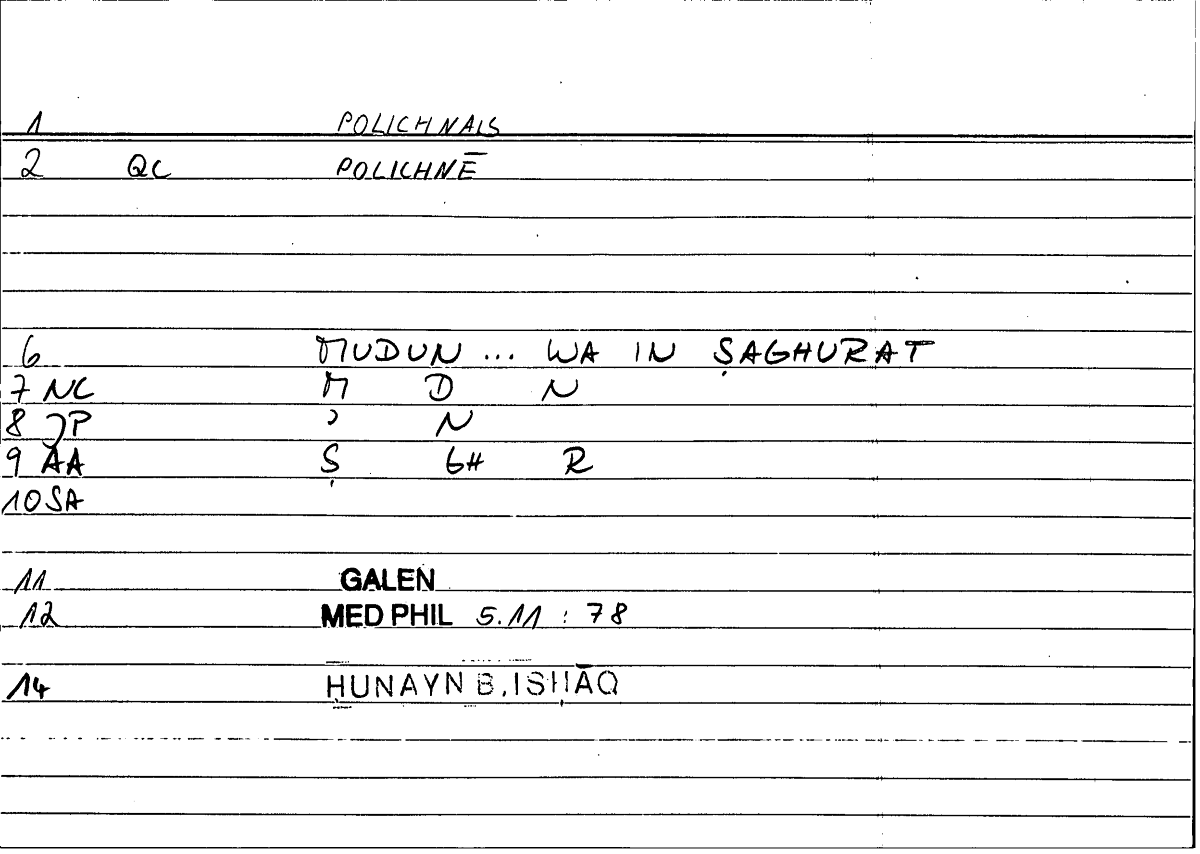 1 POLICHNAIS
2 QC POLICHNĒ
6 MUDUN ... WA IN ṢAGHURAT
7 NC M D N
8 JP ʾ N
9 AA Ṣ GH R
10 SA
11 GALEN
12 MED PHIL 5.11 : 78
14 ḤUNAYN B. ISḤĀQ